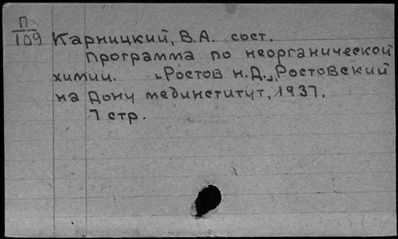 П/109
Карницкий, В.А. сост.
Программа по неорганической
химии. Ростов н.Д., Ростовский
на Дону мединститут, 1937.
7 стр.